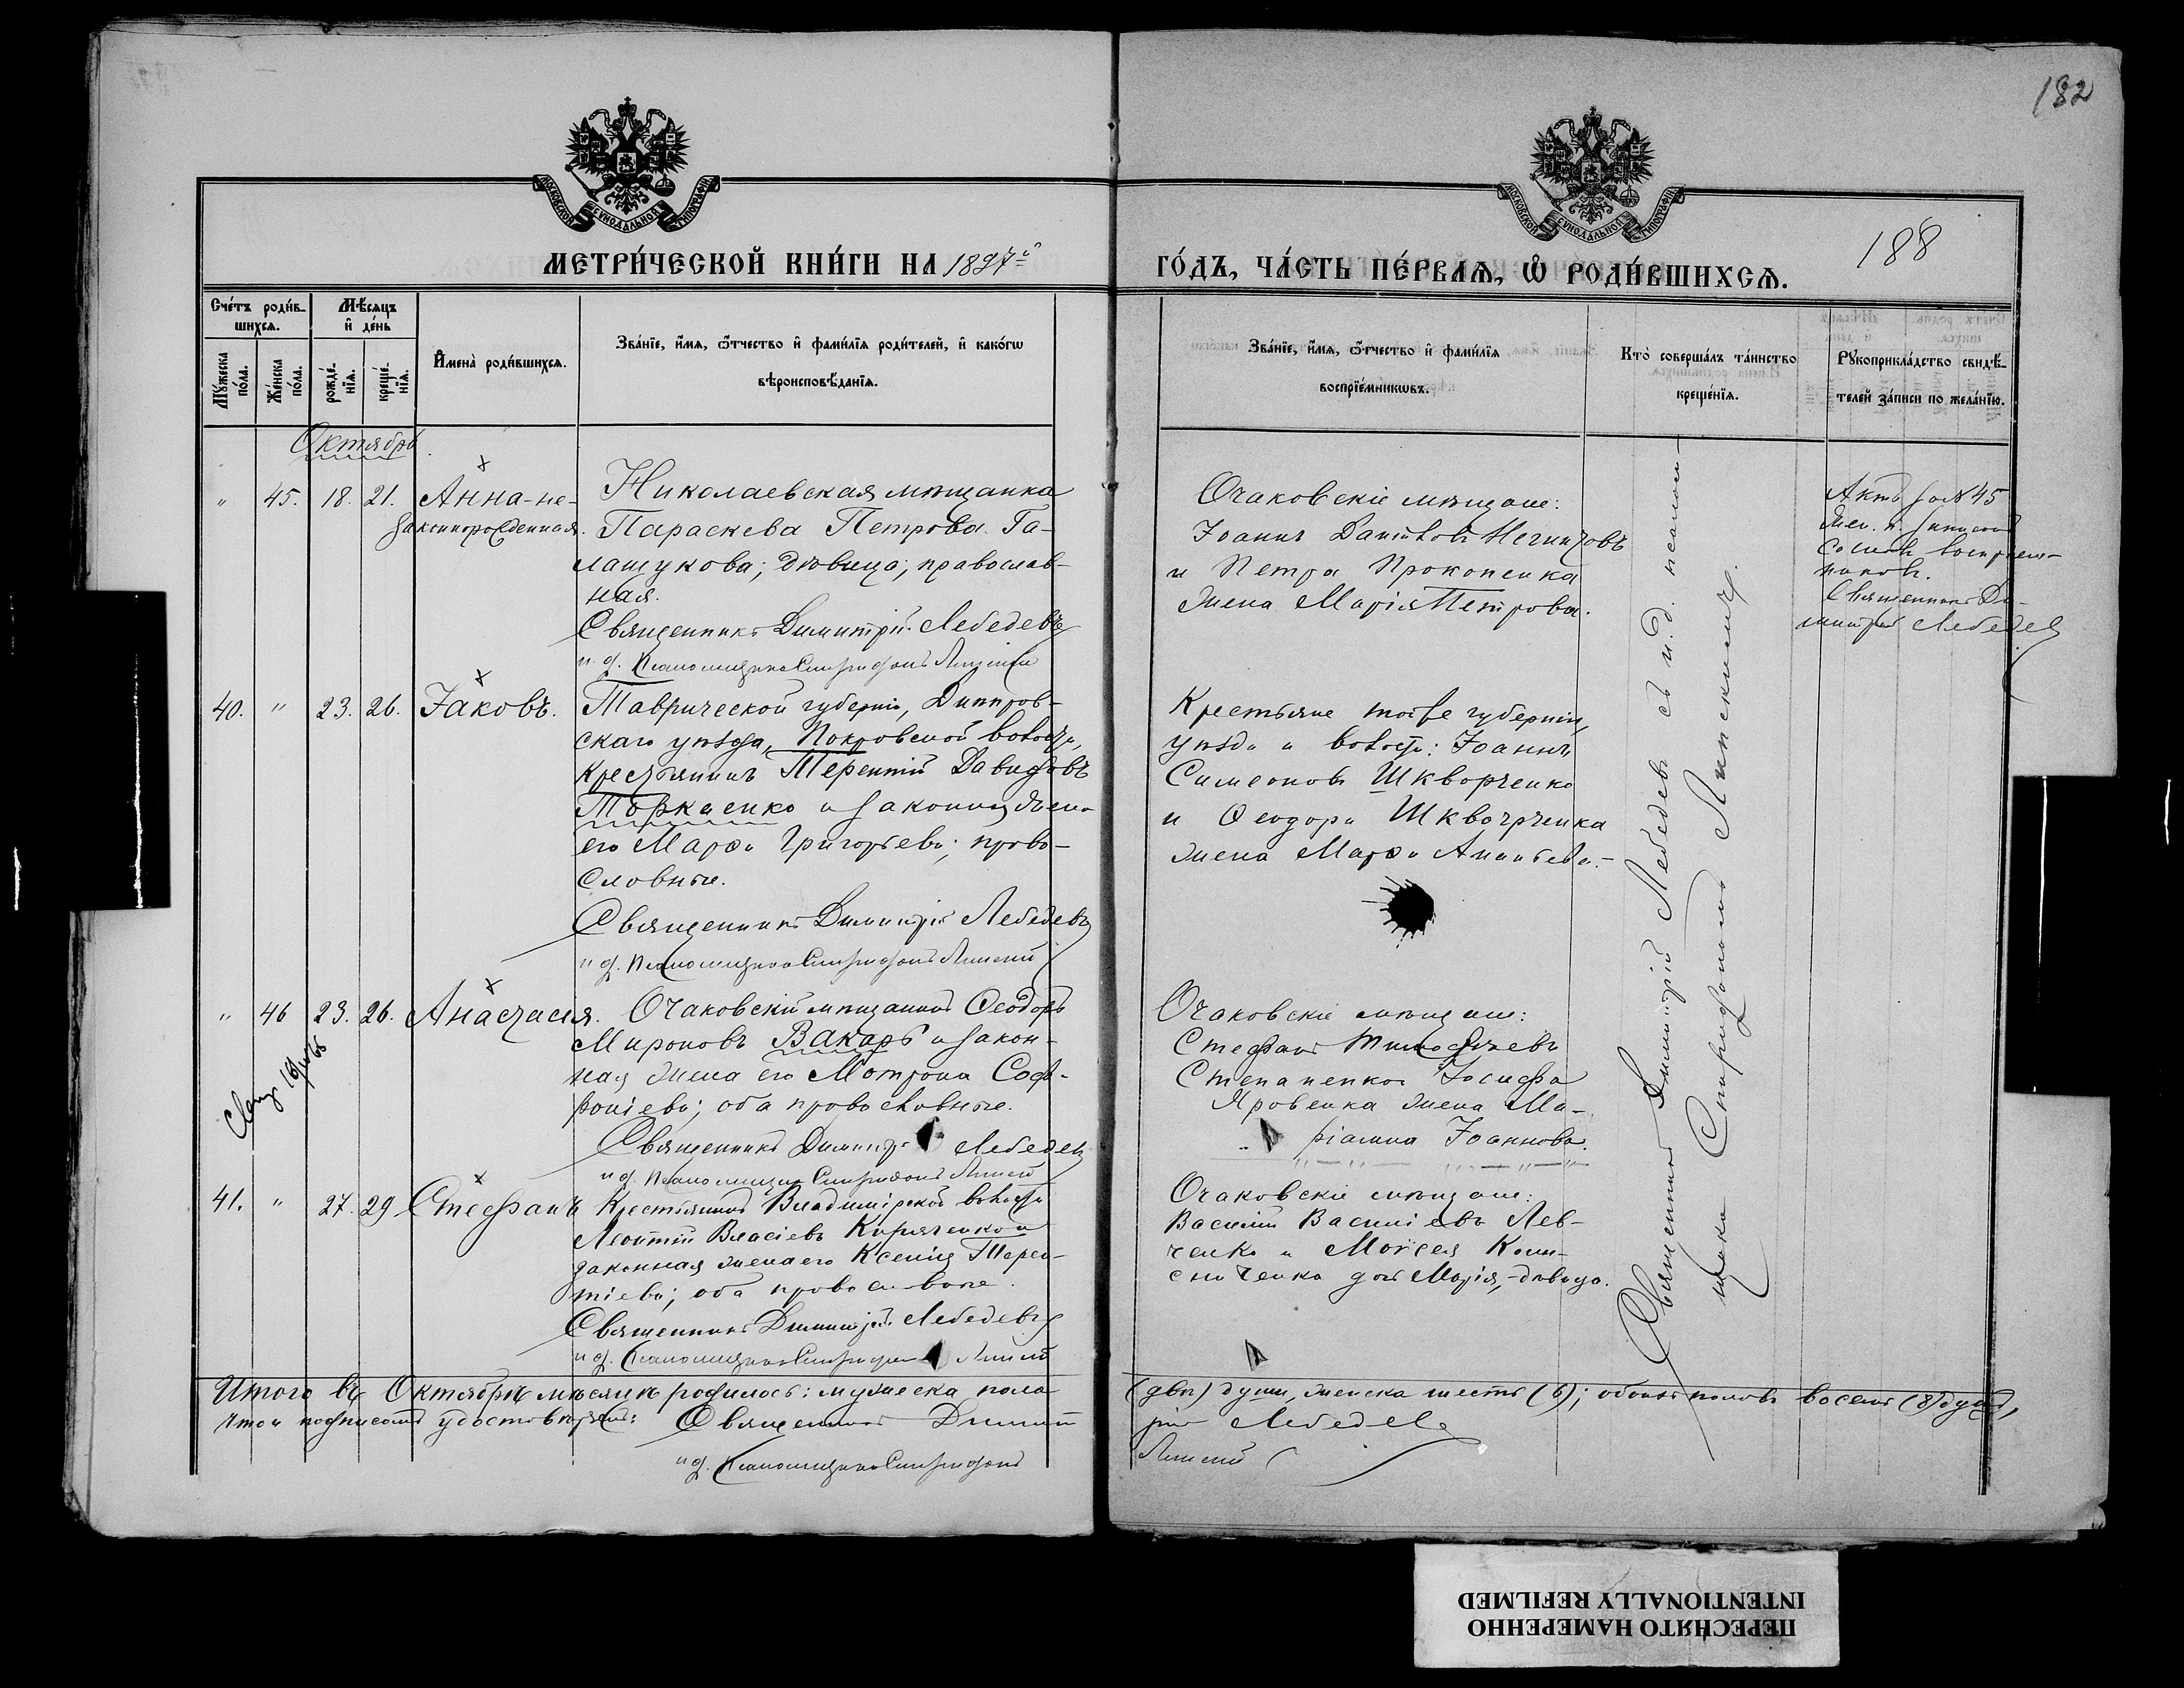 182
188
МОСКОВСКОЙ СѴНОДАЛЬНОЙ ТИПОГРАФІИ
МОСКОВСКОЙ СѴНОДАЛЬНОЙ ТИПОГРАФІИ
МЕТРИ́ЧЕСКОЙ КНИ́ГИ НА 1897й
ГО́ДЪ, ЧА́СТЬ ПЕ́РВАѦ, Ѡ РОДИ́ВШИХСѦ.
Сче́тъ роди́в-
шихсѧ.
Мꙋ́жеска
по́ла.
Же́нска
по́ла.
Мѣ́сѧцъ
и҆ де́нь
рожде́-
нїѧ.
креще́-
нїѧ.
И҆мена̀ роди́вшихсѧ.
Зва́нїе, и҆́мѧ, ѻ҆́тчество и҆ фами́лїѧ роди́телей, и҆ како́гѡ
вѣроисповѣ́данїѧ.
Зва́нїе, и҆́мѧ, ѻ҆́тчество и҆ фами́лїѧ
воспрїе́мникѡвъ.
Кто̀ соверша́лъ та́инство
креще́нїѧ.
Рꙋкоприкла́дство свидѣ́-
телей за́писи по жела́нїю.
Октябрь
" 45. 18. 21. Анна-не-
законнорожденная.
Николаевская мѣщанка
Параскева Петрова Га-
лашукова; дѣвица, православ-
ная.
Священникъ Димитрій Лебедевъ
и. д. Псаломщика Спиридонъ Липскій
Очаковскіе мѣщане:
Іоаннъ
и Петра Прокопенка
жена Марія Петрова.
Актъ за № 45
Священникъ Ди-
митрій Лебедев
40. " 23. 26. Іаковъ.
Таврической губерніи, Днѣпров-
скаго уѣзда, Покровской волости,
крестьянинъ Терентій Давидовъ
и законная жена
его Марѳа Григорьева; право-
славные.
Священникъ Димитрій Лебедевъ
и д. Псаломщика Спиридонъ Липскій
Крестьяне той же губерніи,
уѣзда и волости: Іоаннъ
Симеоновъ Шкворченко
и Ѳеодора Шкворченка
жена Марѳа Ананьева.-
" 46 23. 26. Анастасія.
Очаковскій мѣщанинъ Ѳеодоръ
Мироновъ Вакаръ и закон-
ная жена его Мотрона Соф-
роніева; оба православные.
Священникъ Димитрій Лебедев
и д. Псаломщика Спиридонъ Липскій
Очаковскіе мѣщане:
Стефанъ Тимоѳеевъ
Степаненко Іосифа
Яровенка жена Ма-
ріанна Іоаннова.
41. " 27. 29 Стефанъ
Крестьянинъ Владимірской волости
Леонтій Власіевъ Кириченко и
законная жена его Ксенія Терен-
тіева; оба православные.
Священникъ Димитрій Лебедевъ
и д. Псаломщика Спиридонъ Липскій
Очаковскіе мѣщане:
Василій Василіевъ Лев-
ченко и Моисея Коли-
сниченка дочь Марія, дѣвица.
Священникъ Димитрій Лебедевъ съ и. д. псалом-
щика Спиридономъ Липскимъ.
Итого въ Октябрѣ мѣсяцѣ родилось: мужеска пола
(двѣ) души, женска шесть (6); обоихъ половъ восемь (8) душъ,
что и подписомъ удостовѣряемъ: Священникъ Димит
рій Лебедев
и д. Псаломщика Спиридонъ
Липскій
ПЕРЕСНЯТО НАМЕРЕННО
INTENTIONALLY REFILMED